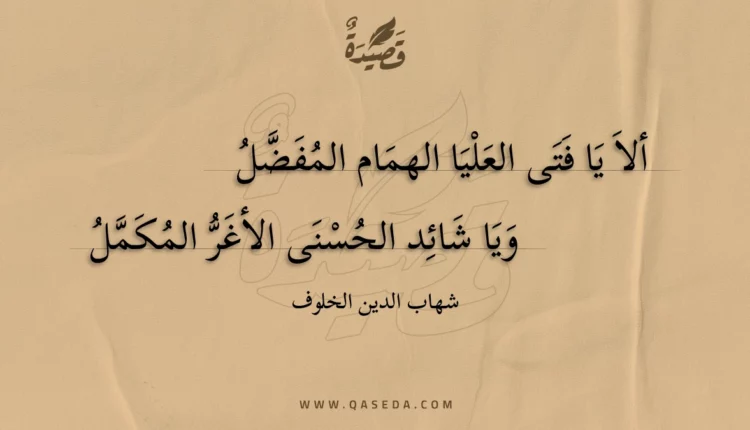 قَصِيدَةٌ
ألاَ يَا فَتَى العَلْيَا الهمَام المُفَضَّلُ
وَيَا شَائِد الحُسْنَى الأغَرُّ المُكَمَّلُ
شهاب الدين الخلوف
WWW.QASEDA.COM